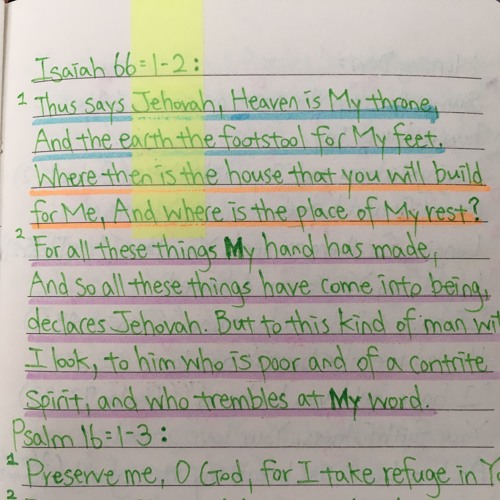 Isaiah 66=1-2:
1 Thus says Jehovah, Heaven is My throne,
And the earth the footstool for My feet.
Where then is the house that you will build
for Me, And where is the place of My rest?
2 For all these things My hand has made,
And so all these things have come into being,
declares Jehovah. But to this kind of man wi
I look, to him who is poor and of a contrite
spirit, and who trembles at My word.
Psalm 16=1-3:
1 Preserve me, O God, for I take refuge in Y
2